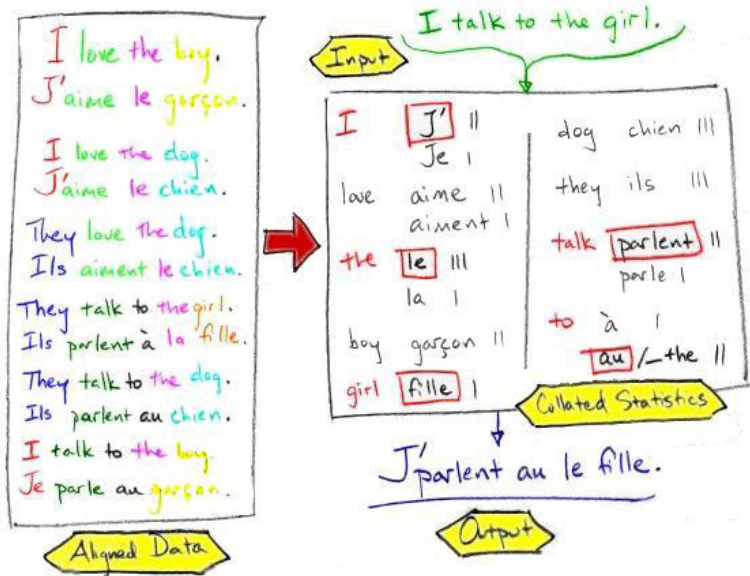 I love the boy.
J'aime le garçon.
I love the dog.
J'aime le chien.
They love the dog.
Ils aiment le chien.
They talk to the girl.
Ils parlent à la fille.
They talk to the dog.
Ils parlent au chien.
I talk to the boy.
Je parle au garçon.
Aligned Data
I talk to the girl.
Input
I J' II
Je I
love aime II
aiment I
the le III
la I
boy garçon II
girl fille I
dog chien III
they ils III
talk parlent II
parle I
to à I
au /_the II
Collated Statistics
J'parlent au le fille.
Output